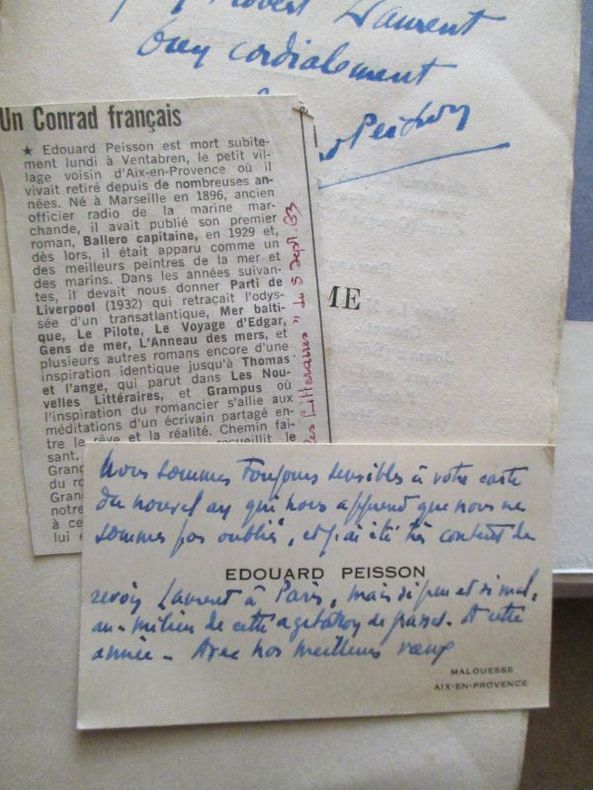 Robert Laurent
bien cordialement
Peisson
Un Conrad français
★ Edouard Peisson est mort subite-
ment lundi à Ventabren, le petit vil-
lage voisin d'Aix-en-Provence où il
vivait retiré depuis de nombreuses an-
nées. Né à Marseille en 1896, ancien
officier radio de la marine mar-
chande, il avait publié son premier
roman, Ballero capitaine, en 1929 et,
dès lors, il était apparu comme un
des meilleurs peintres de la mer et
des marins. Dans les années suivan-
tes, il devait nous donner Parti de
Liverpool (1932) qui retraçait l'odys-
sée d'un transatlantique, Mer balti-
que, Le Pilote, Le Voyage d'Edgar,
Gens de mer, L'Anneau des mers, et
plusieurs autres romans encore d'une
inspiration identique jusqu'à Thomas
et l'ange, qui parut dans Les Nou-
velles Littéraires, et Grampus où
l'inspiration du romancier s'allie aux
méditations d'un écrivain partagé en-
tre le rêve et la réalité. Chemin fai-
sant, recueillit le
Grand
du ro
Grand
notre
à ce
lui é
Littéraires" du 5 Sept. 63
ME
Nous sommes toujours sensibles à votre carte
du nouvel an qui nous apprend que nous ne
sommes pas oubliés, et j'ai été très content de
EDOUARD PEISSON
revoir Laurent à Paris, mais si peu et si mal,
au milieu de cette agitation de
année - Avec nos meilleurs vœux
MALOUESSE
AIX-EN-PROVENCE